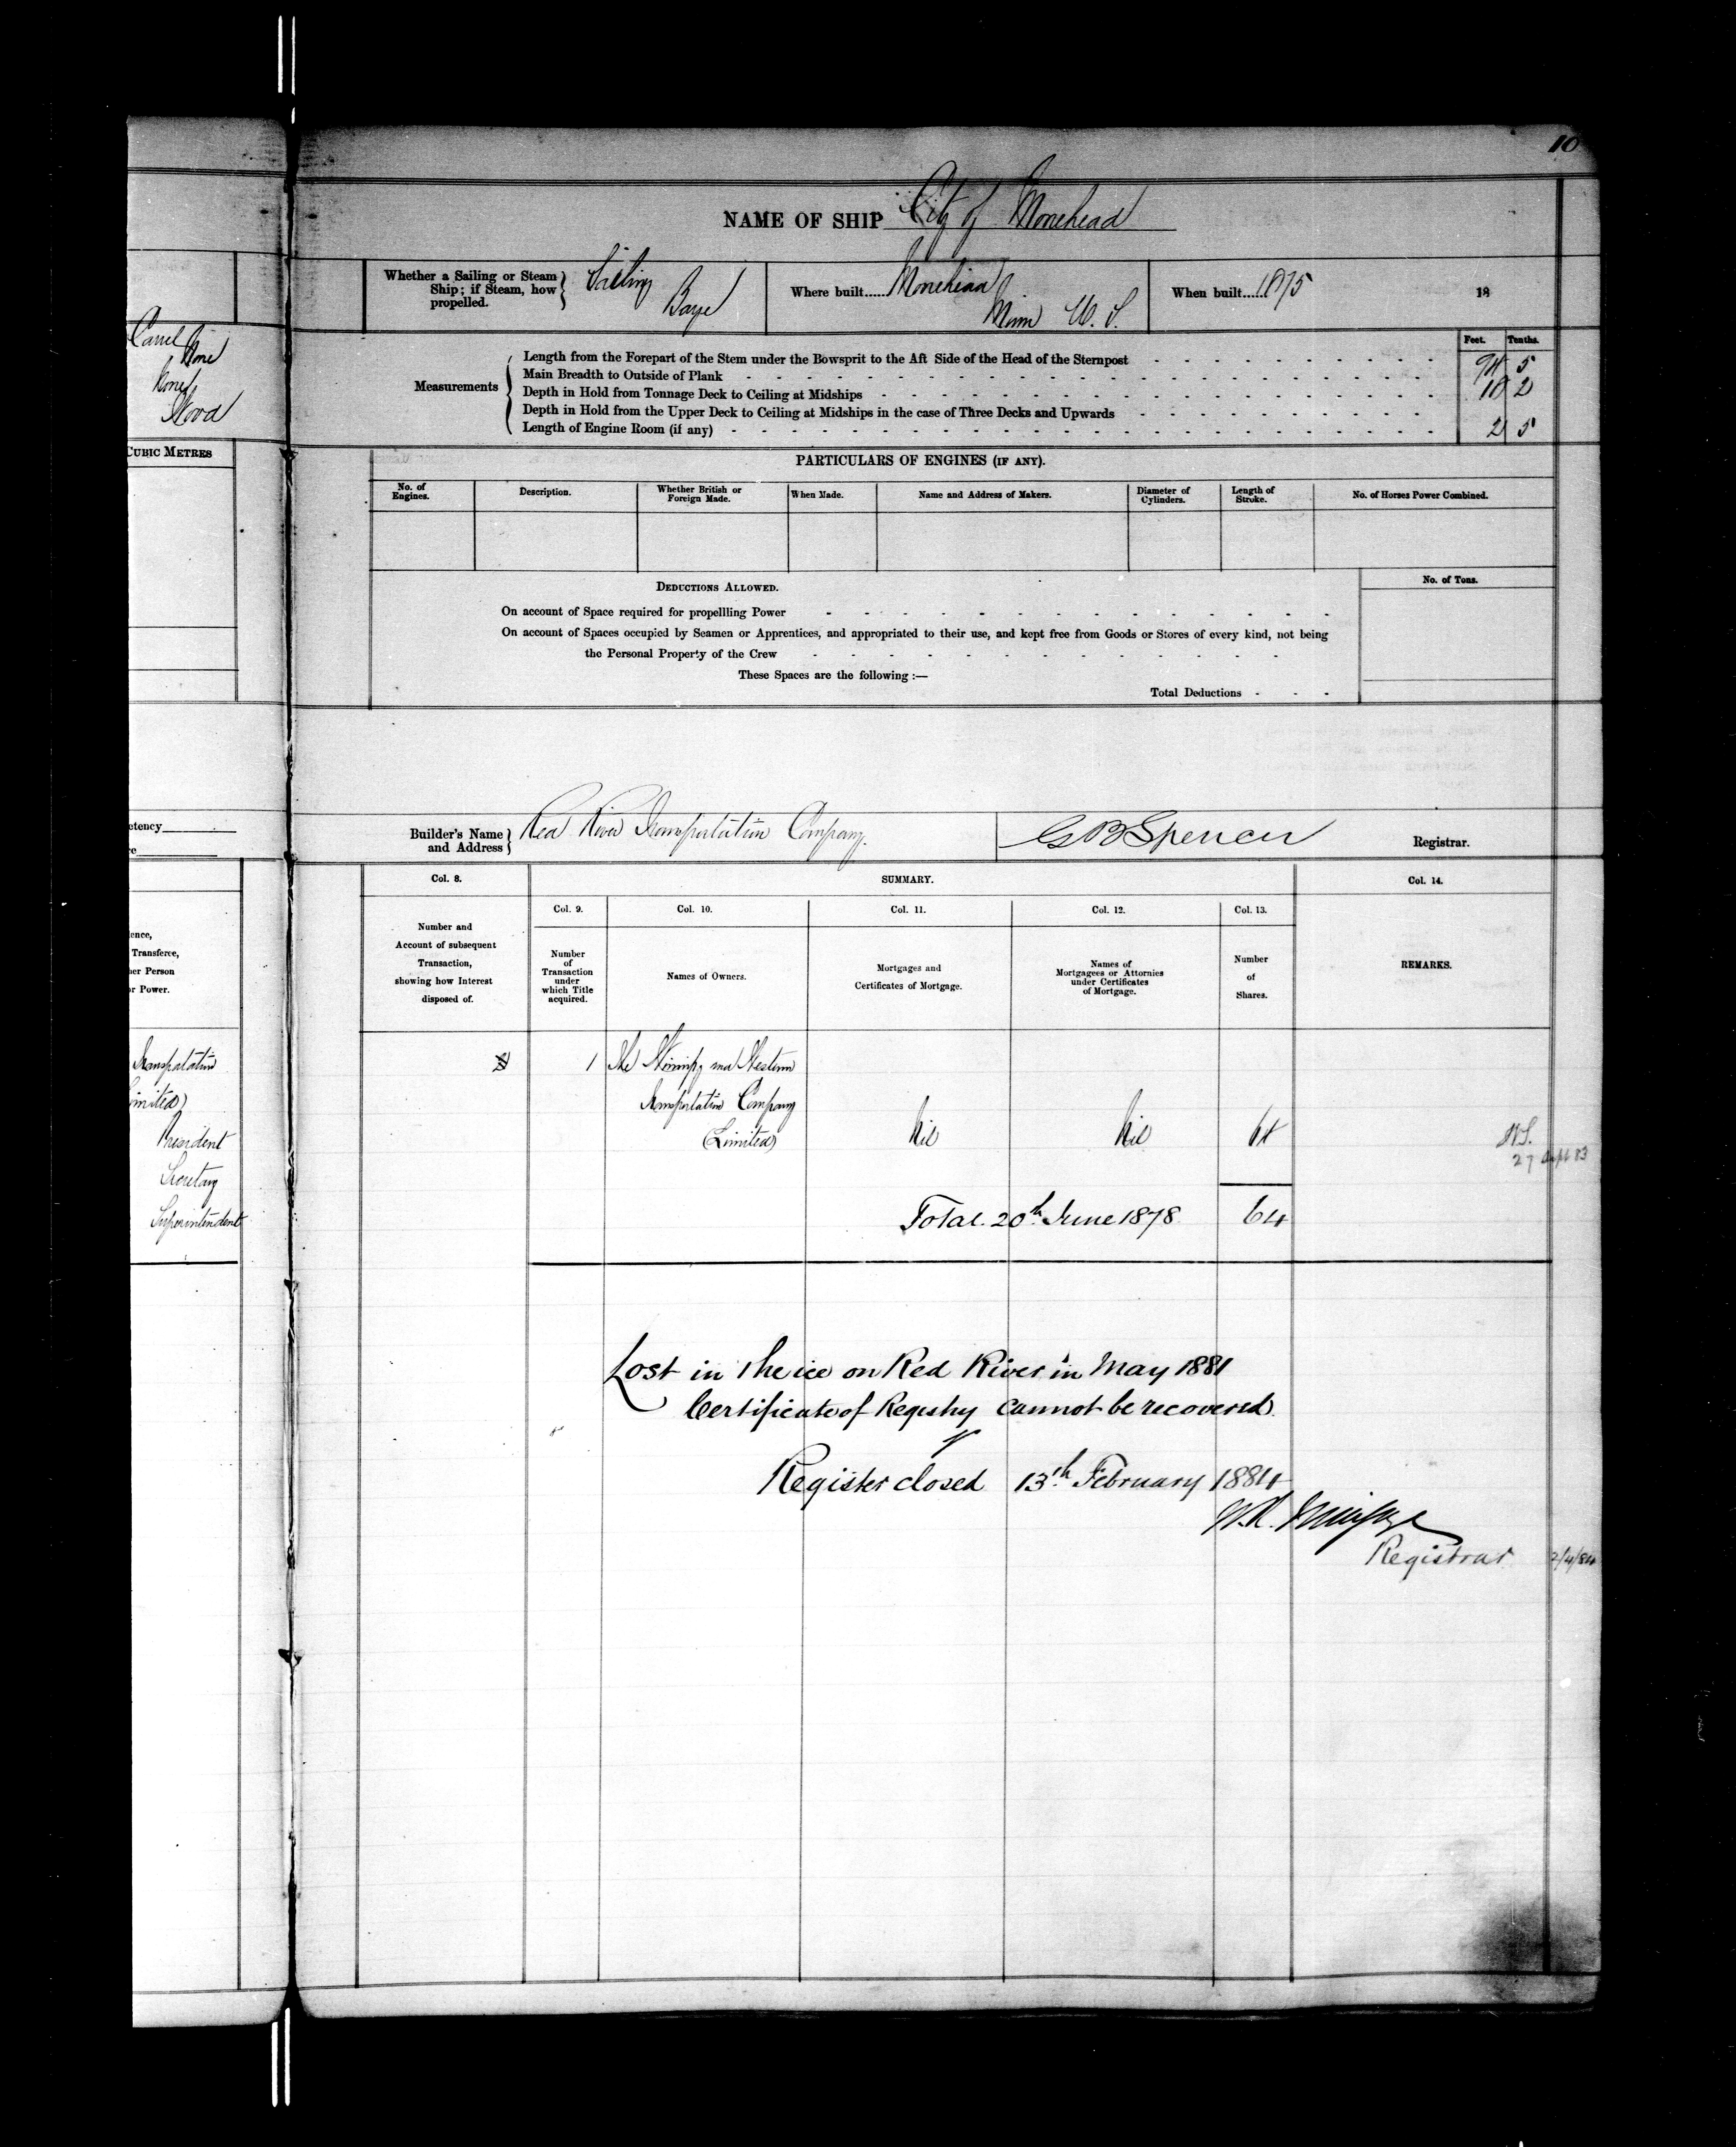 10
NAME OF SHIP City of Monehead
Whether a Sailing or Steam
Ship; if Steam, how
propelled.
Sailing
Barge
Where built...... Monehead
Minn U. S.
When built...... 1875
18
Carvel
None
None
Wood
Feet. Tenths.
Measurements
Length from the Forepart of the Stem under the Bowsprit to the Aft Side of the Head of the Sternpost 94 5
Main Breadth to Outside of Plank 18 2
Depth in Hold from Tonnage Deck to Ceiling at Midships
Depth in Hold from the Upper Deck to Ceiling at Midships in the case of Three Decks and Upwards
Length of Engine Room (if any) 2 5
CUBIC METRES
PARTICULARS OF ENGINES (IF ANY).
No. of
Engines.
Description.
Whether British or
Foreign Made.
When Made.
Name and Address of Makers.
Diameter of
Cylinders.
Length of
Stroke.
No. of Horses Power Combined.
DEDUCTIONS ALLOWED.
No. of Tons.
On account of Space required for propellling Power
On account of Spaces occupied by Seamen or Apprentices, and appropriated to their use, and kept free from Goods or Stores of every kind, not being
the Personal Property of the Crew
These Spaces are the following :—
Total Deductions
etency
Builder's Name
and Address
Red River Transportation Company.
G B Spencer
Registrar.
Col. 8.
SUMMARY.
Col. 14.
Col. 9.
Col. 10.
Col. 11.
Col. 12.
Col. 13.
ence,
Transferee,
her Person
or Power.
Number and
Account of subsequent
Transaction,
showing how Interest
disposed of.
Number
of
Transaction
under
which Title
acquired.
Names of Owners.
Mortgages and
Certificates of Mortgage.
Names of
Mortgagees or Attornies
under Certificates
of Mortgage.
Number
of
Shares.
REMARKS.
Transportation
Limited)
President
Secretary
Superintendent
1 The Winnipeg and Western
Transportation Company
(Limited) Nil Nil 64
Total 20th June 1878 64
Lost in the ice on Red River in May 1881
Certificate of Registry cannot be recovered.
Register closed 13th February 1884
Registrar 2/4/84